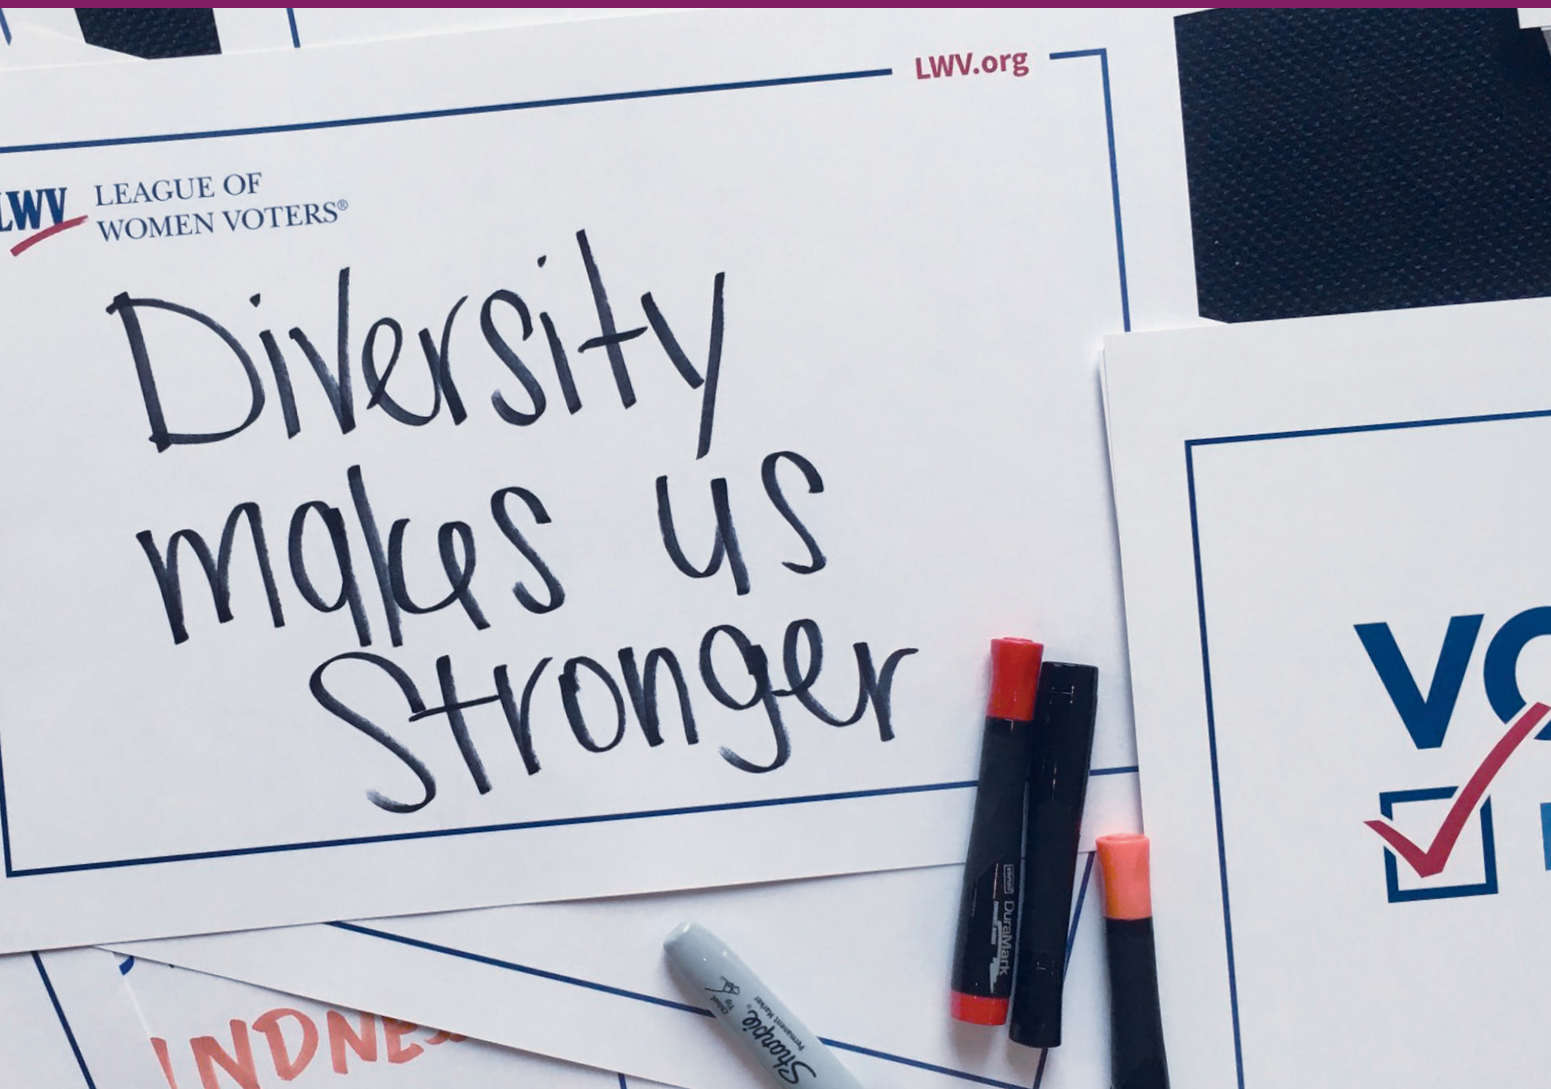 LWV.org
LWV
LEAGUE OF
WOMEN VOTERS®
Diversity
makes us
Stronger
DuraMark
Sharpie
Permanent Marker